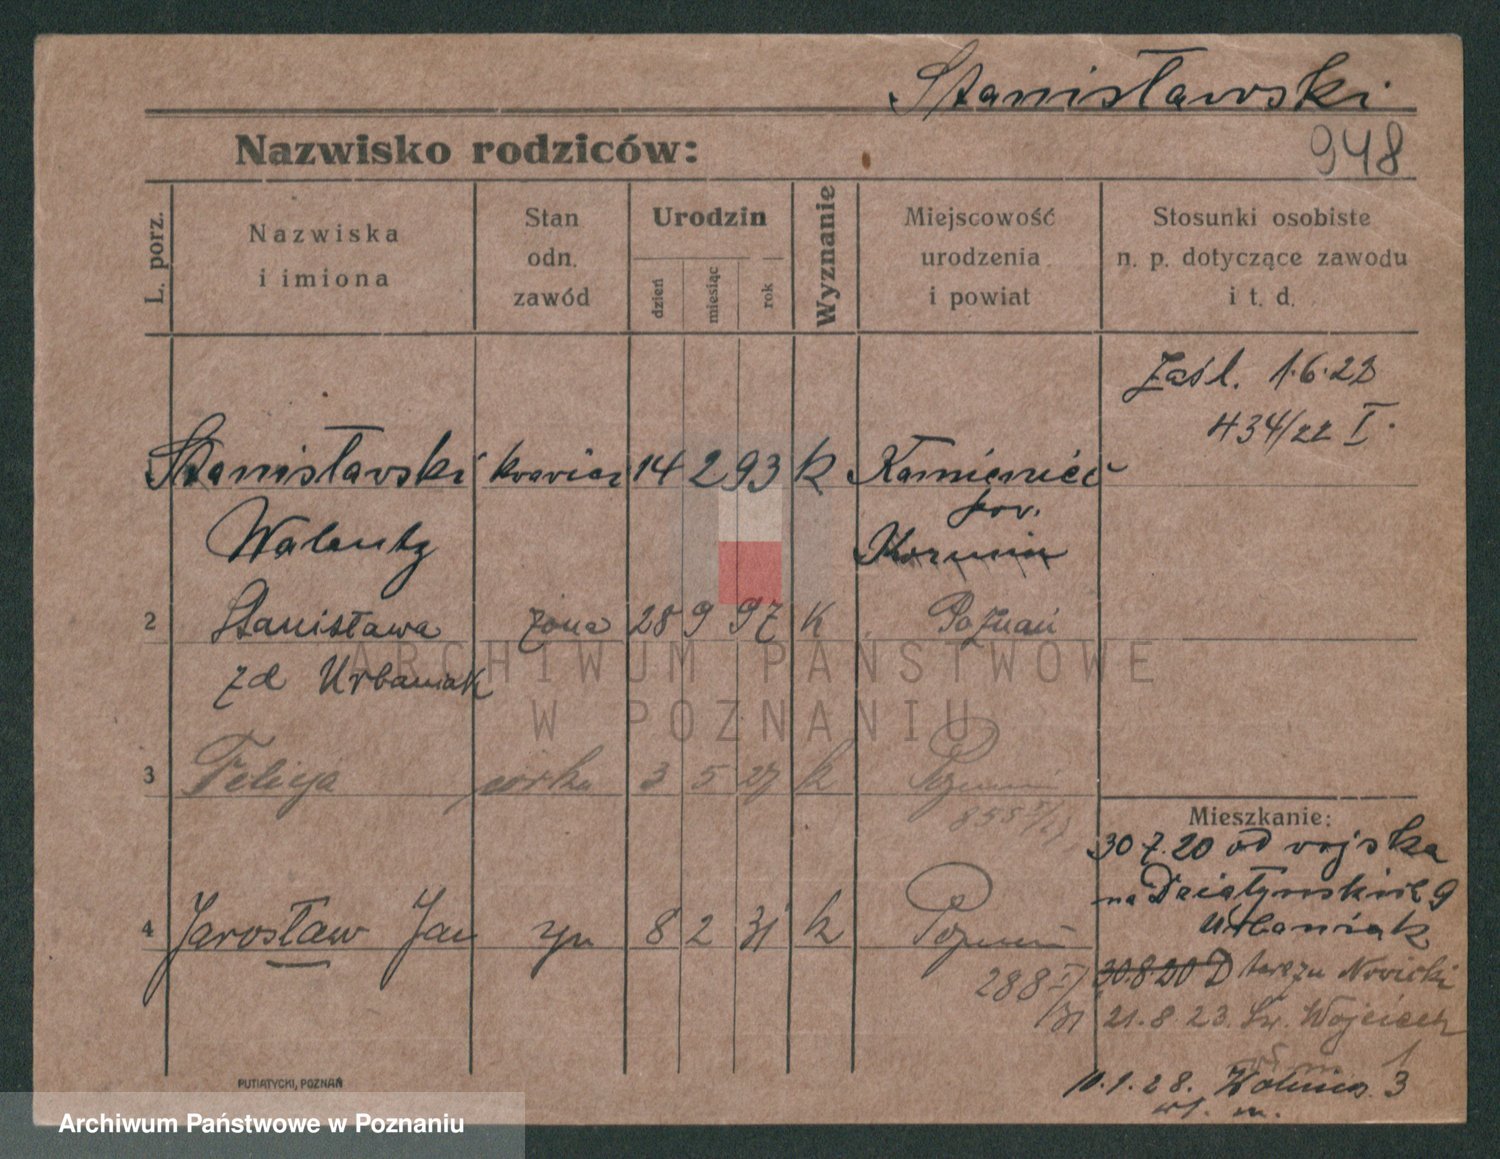 Stanisławski
948
Nazwisko rodziców:
L. porz.
Nazwiska
i imiona
Stan
odn.
zawód
Urodzin
dzień
miesiąc
rok
Wyznanie
Miejscowość
urodzenia
i powiat
Stosunki osobiste
n. p. dotyczące zawodu
i t. d.
Zaśl. 1.6.22
434/22 I.
Stanisławski 14 2 93 k
Walenty pow.
2 Stanisława żona 28 9 97 k Poznań
zd Urbaniak
ARCHIWUM PAŃSTWOWE
W POZNANIU
3 Felicja córka 3 5 27 k Poznań
4 Jarosław Jan syn 8 2 31 k Poznań
288 I/31
Mieszkanie:
30.7.20 od wojska
na 9
Urbaniak
30.8.20 Nowicki
21.8.23. Św. Wojciech
1
10.1.28. 3
m.
PUTIATYCKI, POZNAŃ
Archiwum Państwowe w Poznaniu